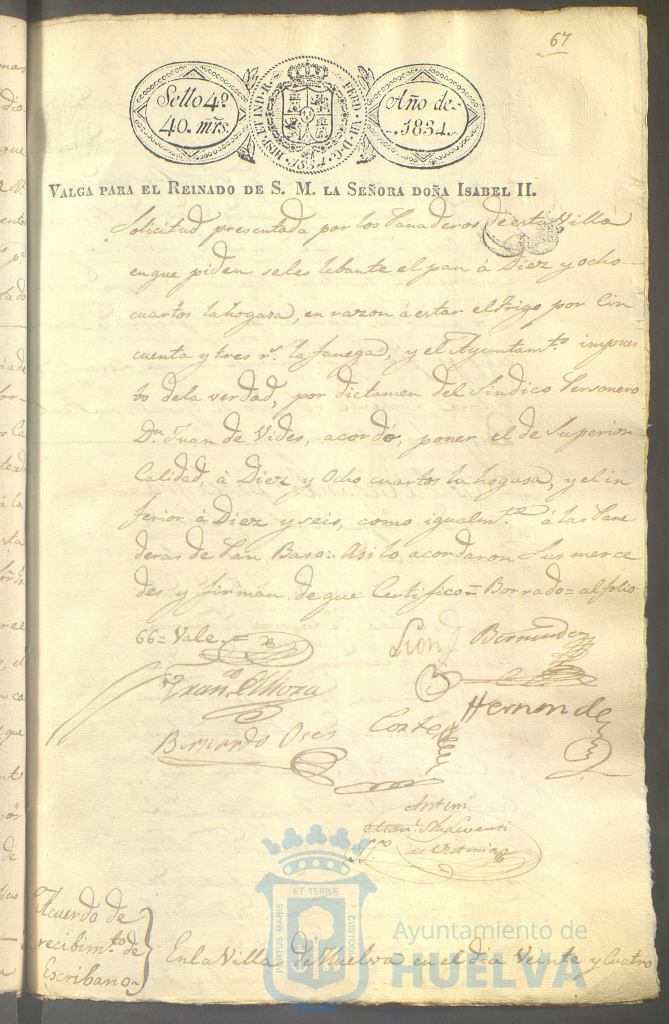 67
Sello 4º
40. mrs.
HISP. ET IND. R. FERD. VII. D. G.
1834
Año de
1834.
VALGA PARA EL REINADO DE S. M. LA SEÑORA DOÑA ISABEL II.
Solicitud presentada por los Panaderos de esta Villa
en que piden se les lebante el pan á Diez y ocho
cuartos la hogasa, en razon á estar el trigo por Cin
cuenta y tres rs. la fanega, y el Ayuntamto. impues
to de la verdad, por dictamen del Sindico Personero
Dn. Juan de Vides, acordó, poner el de Superior
Calidad, á Diez y Ocho cuartos la hogasa, y el in
ferior á Diez y seis, como igualmte. á las Pane
deras de Pan Baso: Asi lo acordaron Sus merce
des y firman de que Certifico = Borrado = al folio
66 = Vale =
Bermudez
Franco.
Hernande
Bernardo Oses Corte
Antemi
Acuerdo de
recibimto. de
Escribano
En la Villa de Huelva en el dia Veinte y Cuatro
PORTUS MARIS
ET TERRÆ
CUSTODIA
Ayuntamiento de
HUELVA